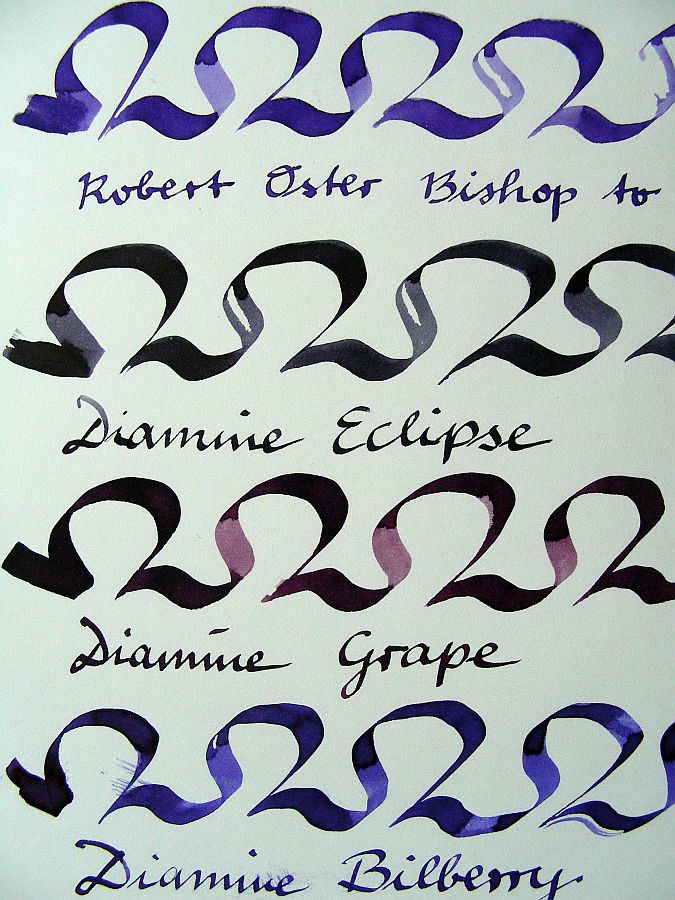 Robert Oster Bishop to
Diamine Eclipse
Diamine Grape
Diamine Bilberry